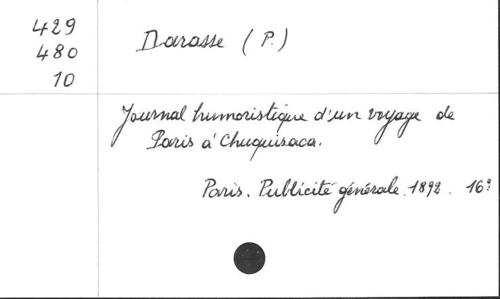 429
480
10
Darasse (P.)
Journal humoristique d'un voyage de
Paris à Chuquisaca.
Paris. Publicité générale. 1892. 16º